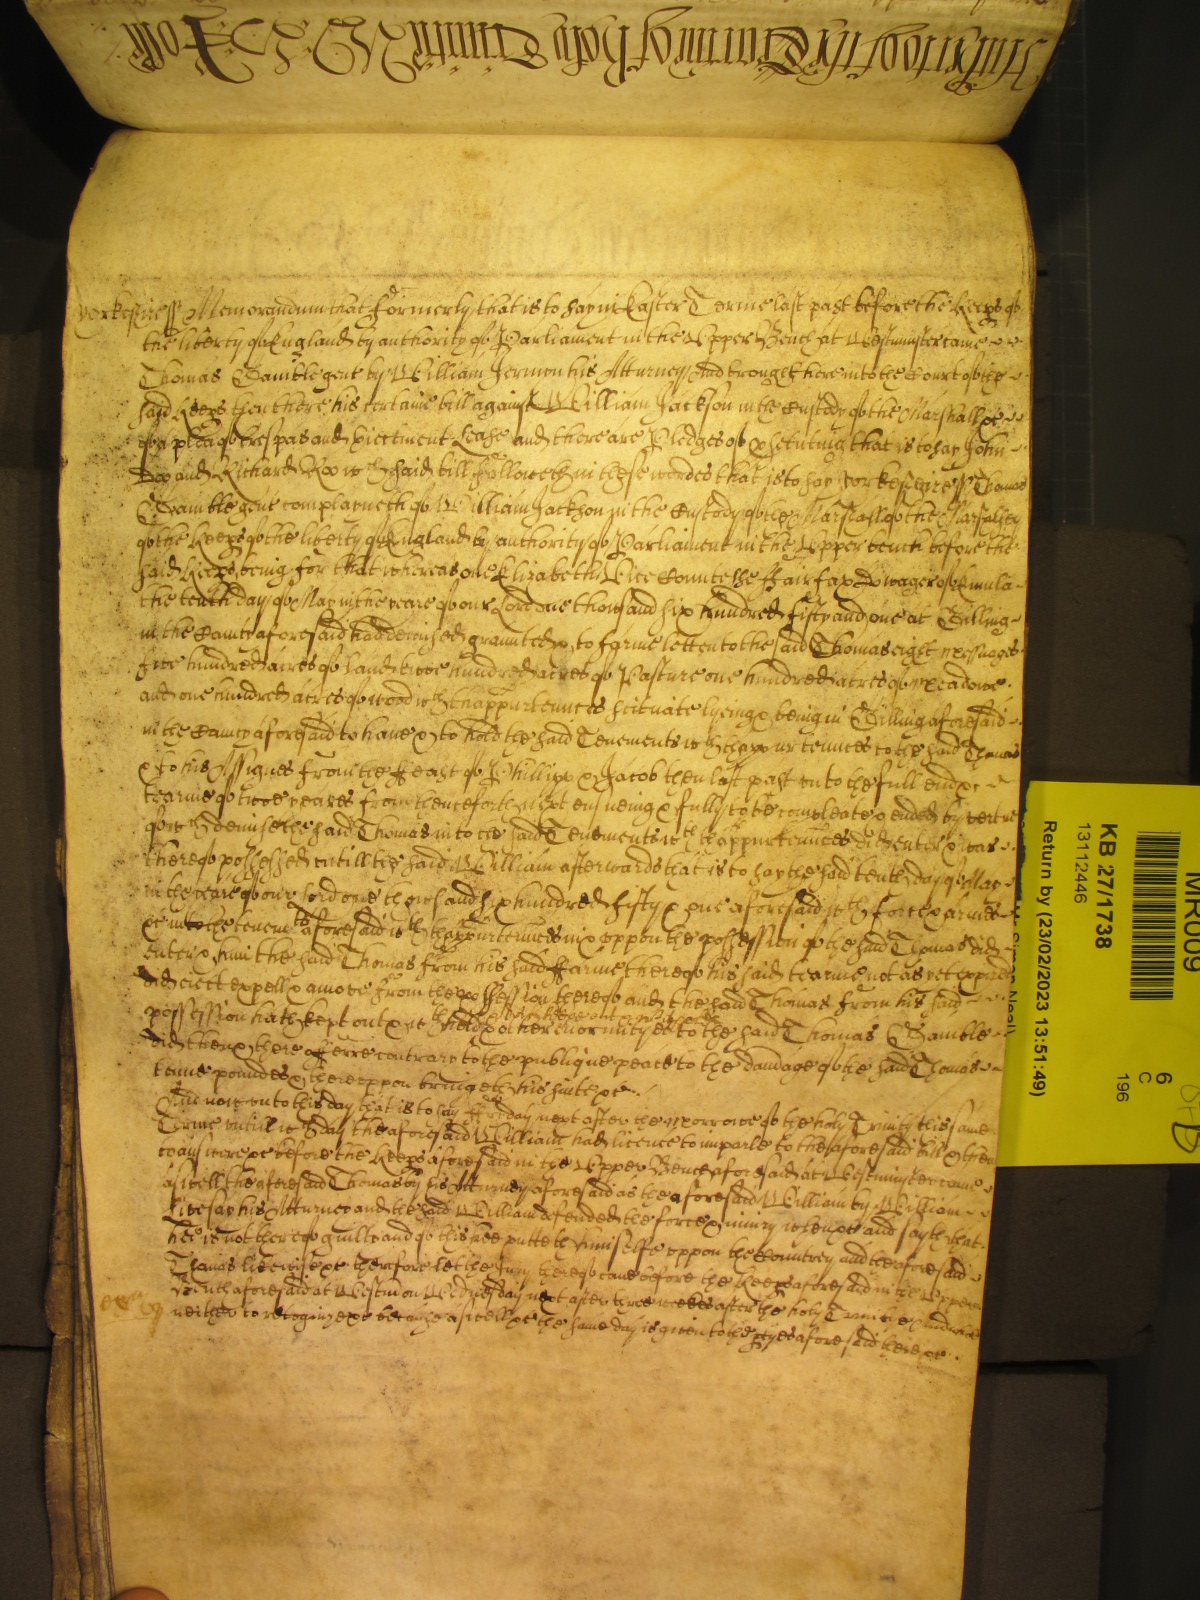 Yorkeshire ss Memorandum that formerly that is to say in Easter Terme last past before the Keeps of
the liberty of England by authority of Parliament in the Upper Bench at Westminster came
Thomas Gamble gent by William Jermon his Atturney And brought here into the Court of the
said Keeps then there his certaine bill against William Jackson in the Custody of the Marshall &c
of a plea of trespas and Eiectment Lease and there are Pledges of ꝑsecuting that is to say John
Doo and Richard Roo wch said bill followeth in these wordes that is to say Yorkeshire ss Thomas
Gamble gent complayneth of William Jackson in the Custody of the Marshall of the Marshalsey
of the Keeps of the liberty of England by authority of Parliament in the Upper bench before the
said Keeps being for that whereas one Elizabeth Vice Countesse ffairfax Dowager of
the tenth day of May in the yeare of our Lord one thousand six hundred fifty and one at Gilling
in the County aforesaid had demised graunted & to farme letten to the said Thomas eight messuages
five hundred acres of land twoe hundred acres of Pasture one hundred acres of meadowe
and one hundred acres of wood wth thappurtennces scituate lyeing & being in Gilling aforesaid
in the County aforesaid to have & to hold the said Tenements wth thappurtennces to the said Thomas
& to his Assignes from the ffeast of Phillipp & Jacob then last past unto the full end &
tearme of twoe yeares from thenceforth next ensueing & fully to be compleate & ended by vertue
of wch demise the said Thomas into the said Tenements wth thappurtennces did enter & was
thereof possessed untill the said William afterwards that is to say the said tenth day of May
in the yeare of our Lord one thousand six hundred fifty & one aforesaid wth force & armes
&c into the tenemts aforesaid wth thappurtennces in & uppon the possession of the said Thomas did
enter & him the said Thomas from his said ffarme thereof his said tearme not as yet expired
did eiect expell & amove from the possession thereof and the said Thomas from his said
possession hath kept out & yet & other enormityes to the said Thomas Gamble
did then & there offerre contrary to the publique peace to the damage of the said Thomas
tenne poundes & thereuppon bringeth his suite &c
And now unto this day that is to say ffryday next after the morrowe of the holy Trinity this same
Terme untill wch day the aforesaid William had licence to imparle to the aforesaid bill & then
to answere &c before the Keeps aforesaid in the Upper Bench aforesaid at Westminster came
aswell the aforesaid Thomas by his Atturney aforesaid as the aforesaid William by William
Livesay his Atturney and the said William defended the force & iniury when &c and sayth that
hee is not thereof guilty and of this hee putteth himselfe uppon the Countrey and the aforesaid
Thomas likewise &c therefore let the Jury thereof come before the Keeps aforesaid in the Upper
Bench aforesaid at Westmr on Wednesday next after three weekes after the holy Trinitie And whoe
neither to recognize &c because aswell &c the same day is given to the ptyes aforesaid there &c
MR009
KB 27/1738
13112446
Return by (23/02/2023 13:51:49)
6
C
196